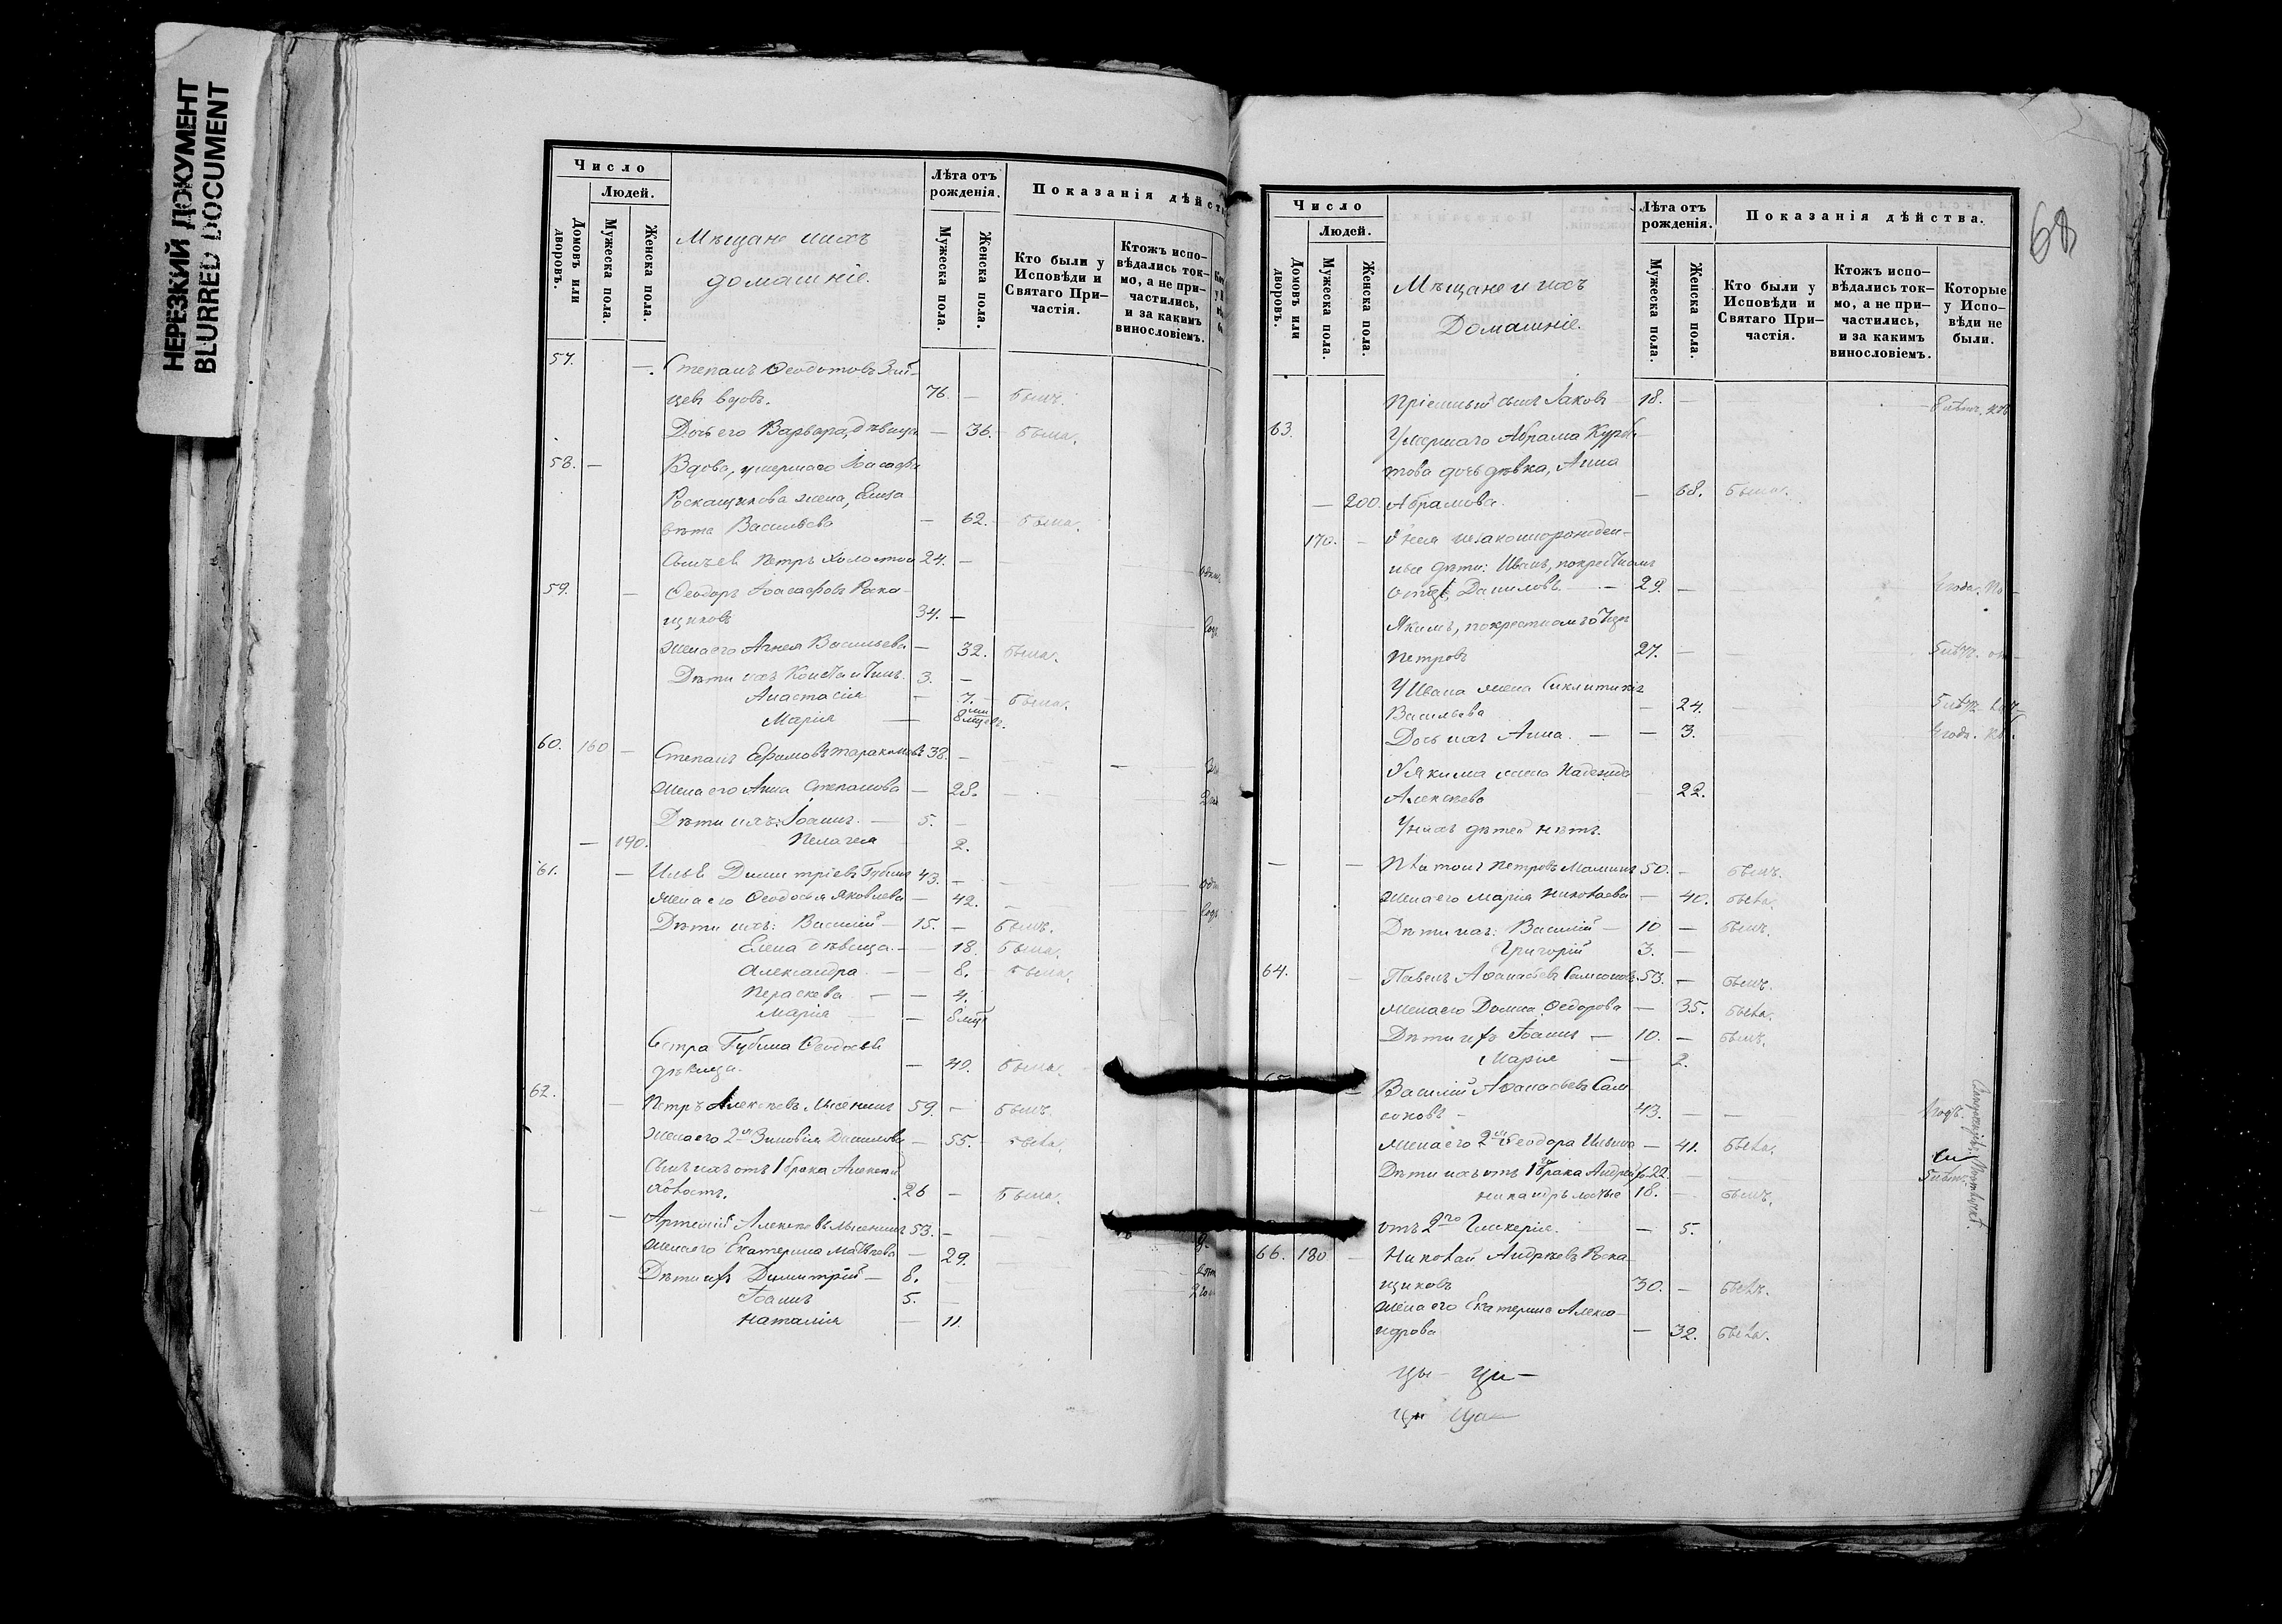 НЕРЕЗКИЙ ДОКУМЕНТ
BLURRED DOCUMENT
Число
Людей.
Домовъ или дворовъ.
Мужеска пола.
Женска пола.
Мѣщане и ихъ
домашніе.
Лѣта отъ рожденія.
Мужеска пола.
Женска пола.
Показанія дѣйств
Кто были у Исповѣди и Святаго Причастія.
Ктожъ исповѣдались токмо, а не причастились, и за какимъ винословіемъ.
57. —. Степанъ Ѳеодотовъ
цевъ вдовъ. 76. — былъ.
Дочь его Варвара, дѣвица — 36. была.
58. — Вдова, умершаго Іоасафа
Роскащикова жена, Елиза
вета Васильева — 62. — была.
Сынъ ея Петръ холостой 24. —
59. — Ѳеодоръ Іоасафовъ Роска
щиковъ 34. —
Жена его Агнея Васильева — 32. была.
Дѣти ихъ Константинъ. 3. —
Анастасія — 7. — была.
Марія — 8
60. 160 — Степанъ Ефимовъ Таракановъ 38. —
Жена его Анна Степанова — 28.
Дѣти ихъ: Іоаннъ. — 5. —
— 190. Пелагея 2.
61. — Илья Димитріевъ Губинъ 43. —
Жена его Ѳеодосья Яковлева — 42.
Дѣти ихъ: Василій — 15. — былъ.
Елена дѣвица. — — 18. была.
Александра — — 8. — была.
Пераскева — — 4.
Марія — — 8 мцъ
Сестра Губина Ѳеодосья
дѣвица. — 40. была.
62. — Петръ Алексѣевъ Мысенинъ 59. — былъ.
Жена его 2я Зиновія Данилова — 55. была.
Сынъ ихъ отъ 1 брака Алексѣй
холостъ. 26 — была.
— — Артемій Алексѣевъ Мысенинъ 53. —
Жена его Екатерина Матвѣева — 29.
Дѣти ихъ Димитрій — 8.
Іоаннъ 5. —
Наталія — 11.
68
Число
Людей.
Домовъ или дворовъ.
Мужеска пола.
Женска пола.
Мѣщане и ихъ
Домашніе.
Лѣта отъ рожденія.
Мужеска пола.
Женска пола.
Показанія дѣйства.
Кто были у Исповѣди и Святаго Причастія.
Ктожъ исповѣдались токмо, а не причастились, и за какимъ винословіемъ.
Которые у Исповѣди не были.
Пріемный сынъ Іаковъ 18. — — 8 лѣтъ.
63. Умершаго Абрама Курба
това дочь дѣвка, Анна
— 200. Абрамова. — 68. была.
170. — У нея незаконнорожден-
ные дѣти: Иванъ, по крестномъ
отцѣ, Даниловъ. — 29. — 4 года.
Якимъ, по крестномъ отцѣ
Петровъ 27. — 5 лѣтъ.
У Ивана жена Синклитикія
Васильева — 24. 5 лѣтъ
Дочь ихъ Анна. — — 3. 4 года.
У Якима жена Надежда
Алексѣева — 22.
У нихъ дѣтей нѣтъ.
— — Платонъ Петровъ Маминъ 50. — былъ.
Жена его Марія Николаева — 40. была.
Дѣти ихъ: Василій — 10 — былъ.
Григорій 3. —
64. — Павелъ Аѳанасьевъ Самсоновъ. 53. — былъ.
Жена его Домна Ѳедорова — 35. была.
Дѣти ихъ Іоаннъ — 10. — былъ.
Марія — 2.
65. — Василій Аѳанасьевъ Сам
соновъ — 43. — — 1 годъ.
Жена его 2я Ѳеодора Ильина — 41. была.
Дѣти ихъ отъ 1го брака Андрей 22. 5 лѣтъ.
Никандръ 18. — былъ.
отъ 2го Гликерія. — 5.
66. 180 — Николай Андреевъ Роска
щиковъ 30. — былъ.
Жена его Екатерина Алекса-
ндрова — 32. была.